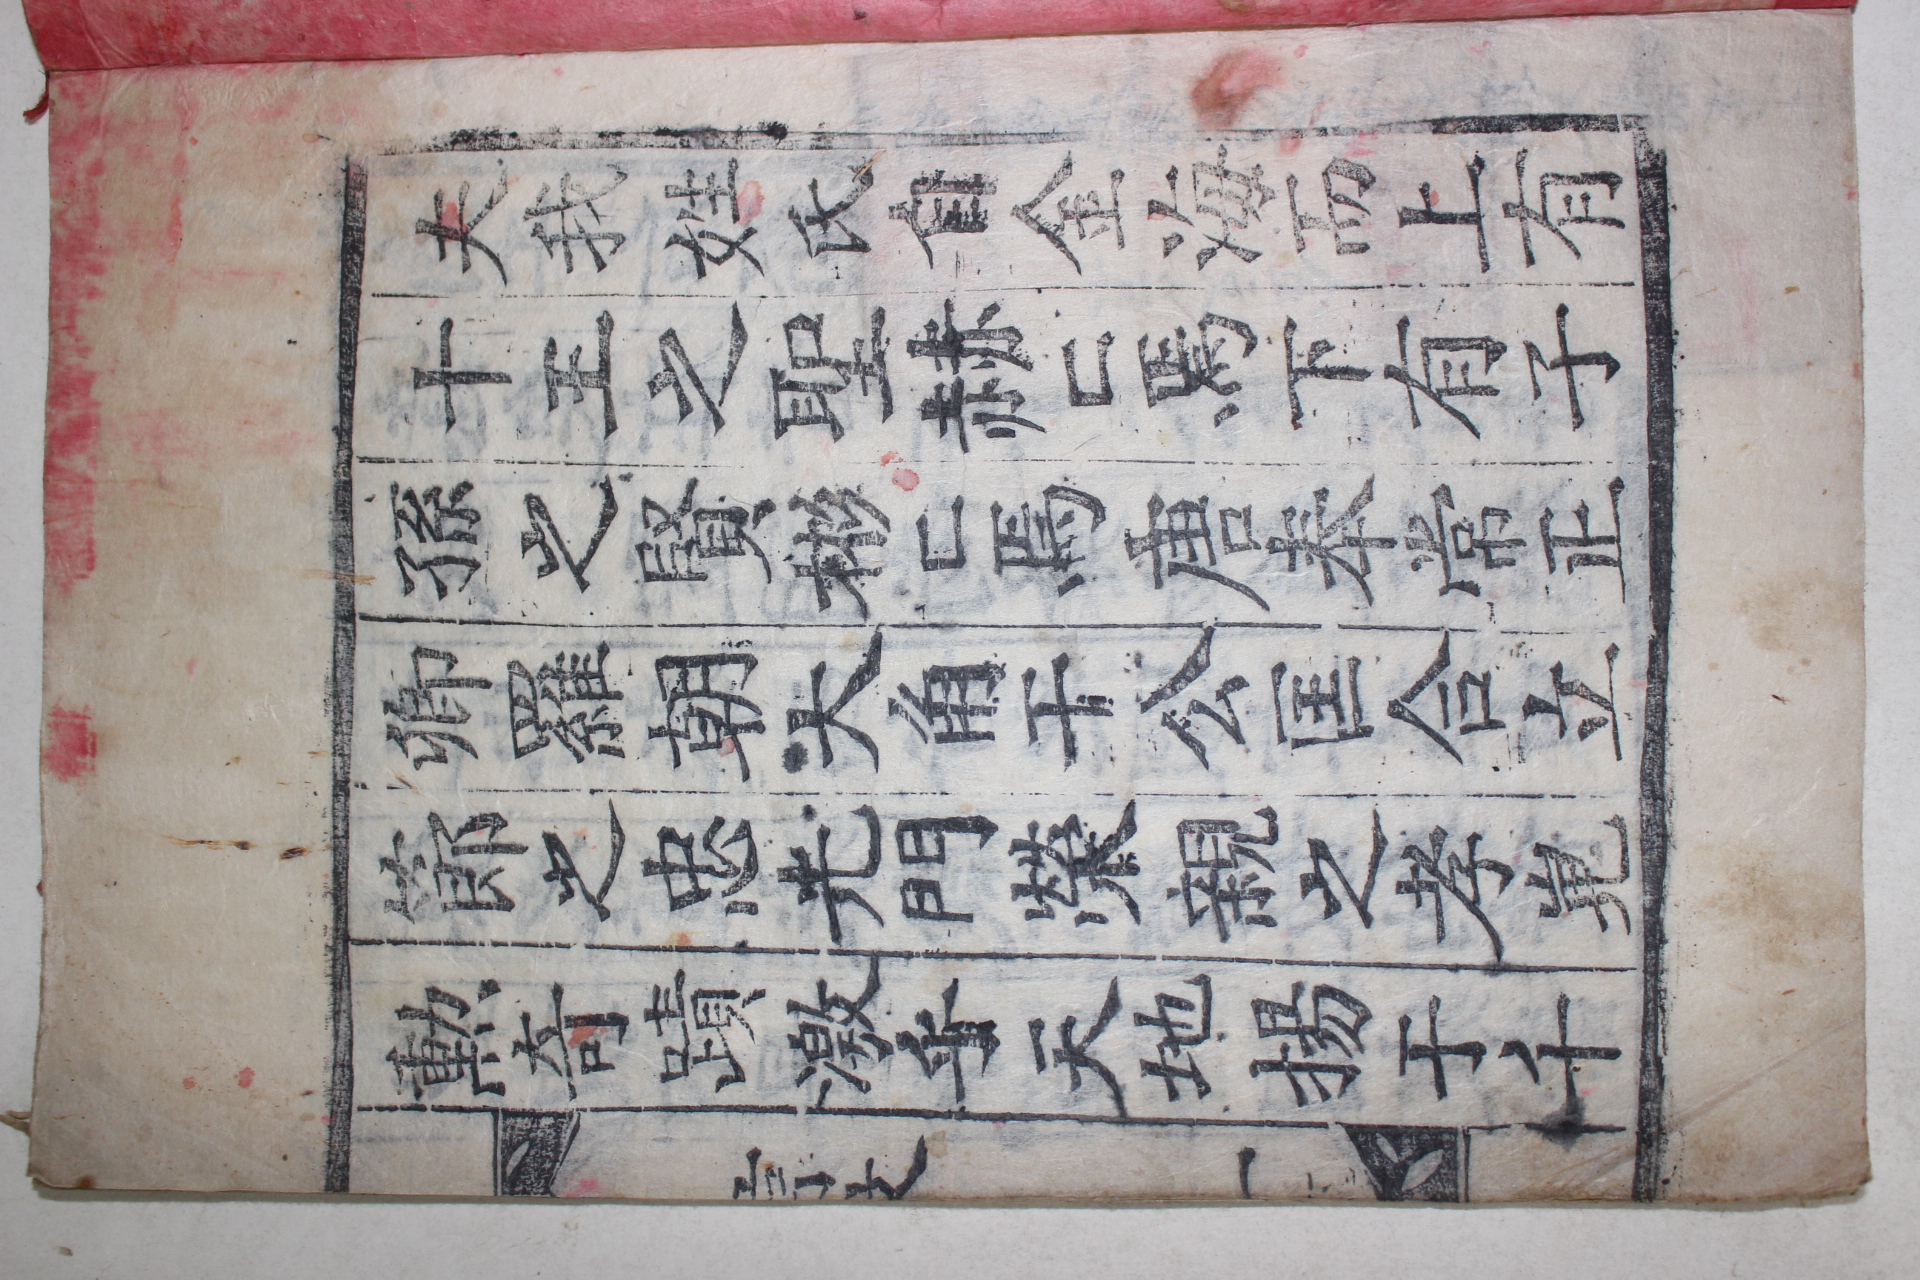 夫我姓氏自金海而上有
十王之聖赫〻焉下有子
孫之賢彬〻焉唐奉常正
卿羅朝大角干公匡合立
節之忠光門榮親之孝嵬
勲竒蹟激乎天地揚于千
一